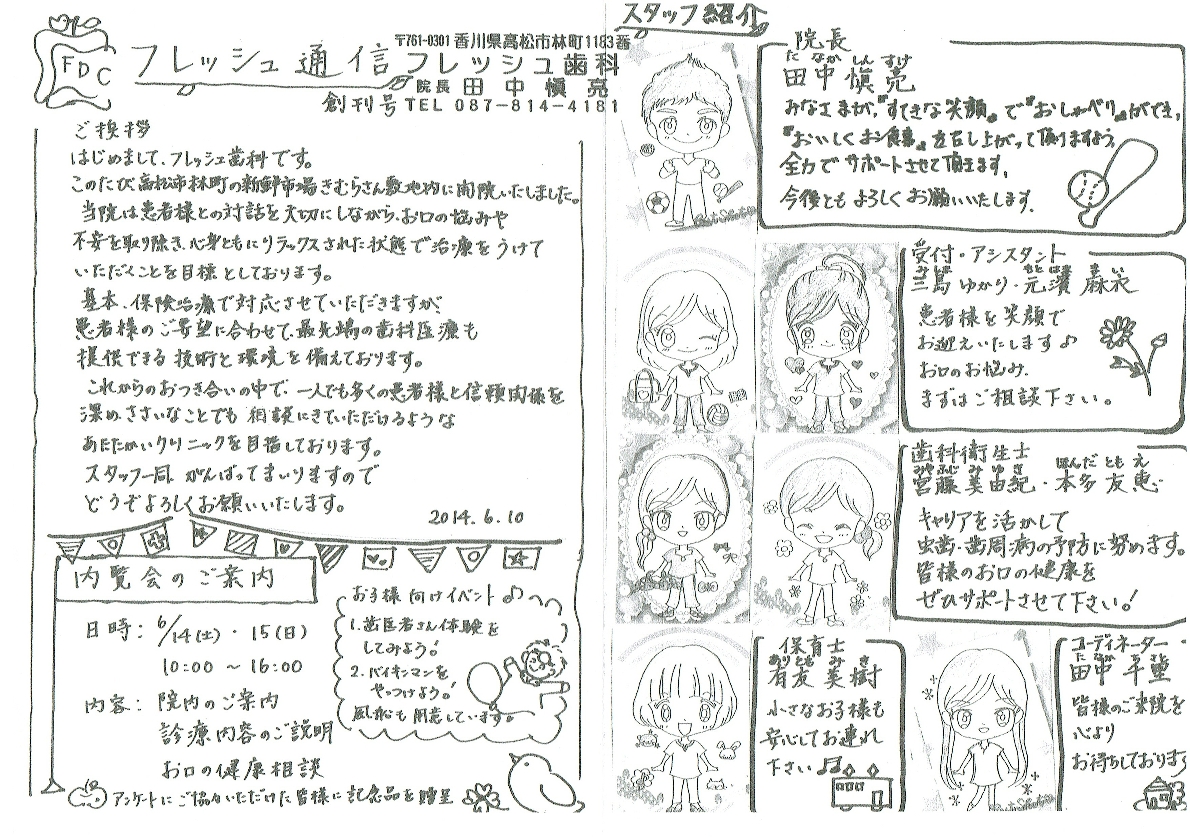 FDC
フレッシュ通信
〒761-0301 香川県高松市林町1183番
フレッシュ歯科
院長 田中慎亮
創刊号 TEL 087-814-4181
ご挨拶
はじめまして、フレッシュ歯科です。
このたび高松市林町の新鮮市場きむらさん敷地内に開院いたしました。
当院は患者様との対話を大切にしながら、お口の悩みや
不安を取り除き、心身ともにリラックスされた状態で治療をうけて
いただくことを目標としております。
基本、保険治療で対応させていただきますが、
患者様のご希望に合わせて、最先端の歯科医療も
提供できる技術と環境を備えております。
これからのおつき合いの中で、一人でも多くの患者様と信頼関係を
深め、ささいなことでも相談にきていただけるような
あたたかいクリニックを目指しております。
スタッフ一同、がんばってまいりますので
どうぞよろしくお願いいたします。
2014.6.10
内覧会のご案内
日時: 6/14(土)・15(日)
10:00 ～ 16:00
内容: 院内のご案内
診療内容のご説明
お口の健康相談
お子様向けイベント♪
1. 歯医者さん体験を
してみよう!
2. バイキンマンを
やっつけよう!
風船も用意しています。
アンケートにご協力いただけた皆様に記念品を贈呈
スタッフ紹介
院長
たなか しんすけ
田中 慎亮
みなさまが、『すてきな笑顔』で『おしゃべり』ができ、
『おいしくお食事』を召し上がって頂けますよう、
全力でサポートさせて頂きます。
今後ともよろしくお願いいたします。
受付・アシスタント
みしま もとはま まい
三島 ゆかり・元濱 麻衣
患者様を笑顔で
お迎えいたします♪
お口のお悩み、
まずはご相談下さい。
歯科衛生士
みやふじ みゆき ほんだ ともえ
宮藤 美由紀・本多 友恵
キャリアを活かして
虫歯・歯周病の予防に努めます。
皆様のお口の健康を
ぜひサポートさせて下さい!
保育士
ありとも みき
有友 美樹
小さなお子様も
安心してお連れ
下さい♫
コーディネーター
たなか ちさ
田中 千
皆様のご来院を
心より
お待ちしております